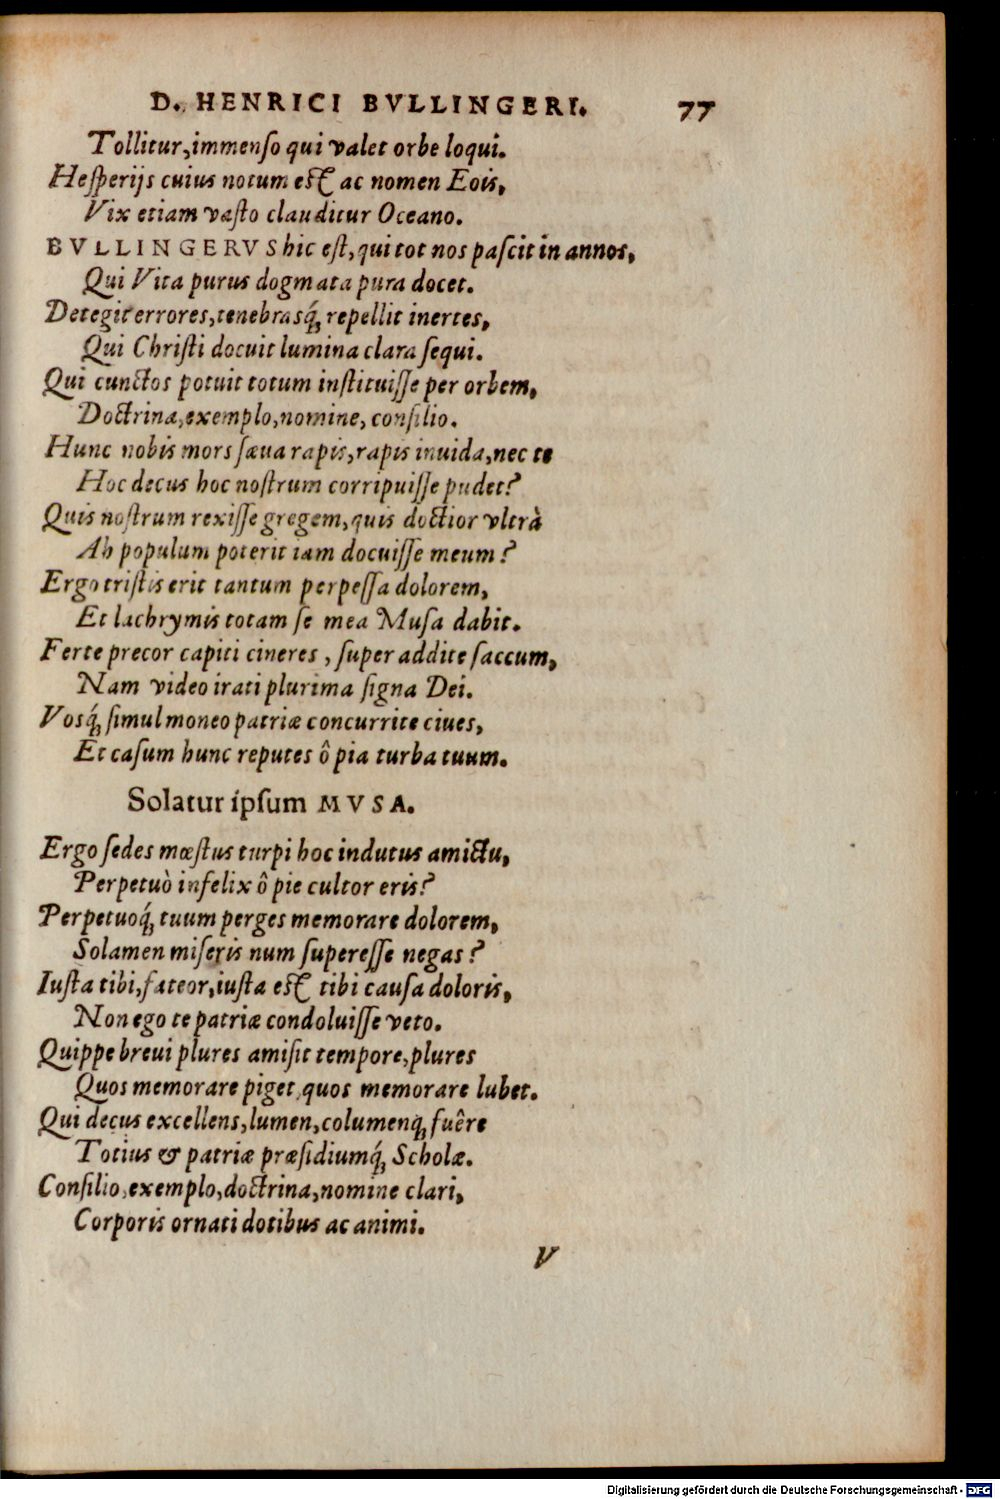 D. HENRICI BVLLINGERI. 77
Tollitur, immenſo qui valet orbe loqui.
Heſperijs cuius notum eſt ac nomen Eois,
Vix etiam vaſto clauditur Oceano.
BVLLINGERVS hic eſt, qui tot nos paſcit in annos,
Qui Vita purus dogmata pura docet.
Detegit errores, tenebrasq́; repellit inertes,
Qui Chriſti docuit lumina clara ſequi.
Qui cunctos potuit totum inſtituiſſe per orbem,
Doctrina, exemplo, nomine, conſilio.
Hunc nobis mors ſæua rapis, rapis inuida, nec te
Hoc decus hoc noſtrum corripuiſſe pudet?
Quis noſtrum rexiſſe gregem, quis doctior vltrà
Ah populum poterit iam docuiſſe meum?
Ergo triſtis erit tantum perpeſſa dolorem,
Et lachrymis totam ſe mea Muſa dabit.
Ferte precor capiti cineres, ſuper addite ſaccum,
Nam video irati plurima ſigna Dei.
Vosq́; ſimul moneo patriæ concurrite ciues,
Et caſum hunc reputes ô pia turba tuum.
Solatur ipſum MVSA.
Ergo ſedes mœſtus turpi hoc indutus amictu,
Perpetuò infelix ô pie cultor eris?
Perpetuoq́; tuum perges memorare dolorem,
Solamen miſeris num ſupereſſe negas?
Iuſta tibi, fateor, iuſta eſt tibi cauſa doloris,
Non ego te patriæ condoluiſſe veto.
Quippe breui plures amiſit tempore, plures
Quos memorare piget, quos memorare lubet.
Qui decus excellens, lumen, columenq́; fuêre
Totius & patriæ præſidiumq́; Scholæ.
Conſilio, exemplo, doctrina, nomine clari,
Corporis ornati dotibus ac animi.
V
Digitalisierung gefördert durch die Deutsche Forschungsgemeinschaft - DFG